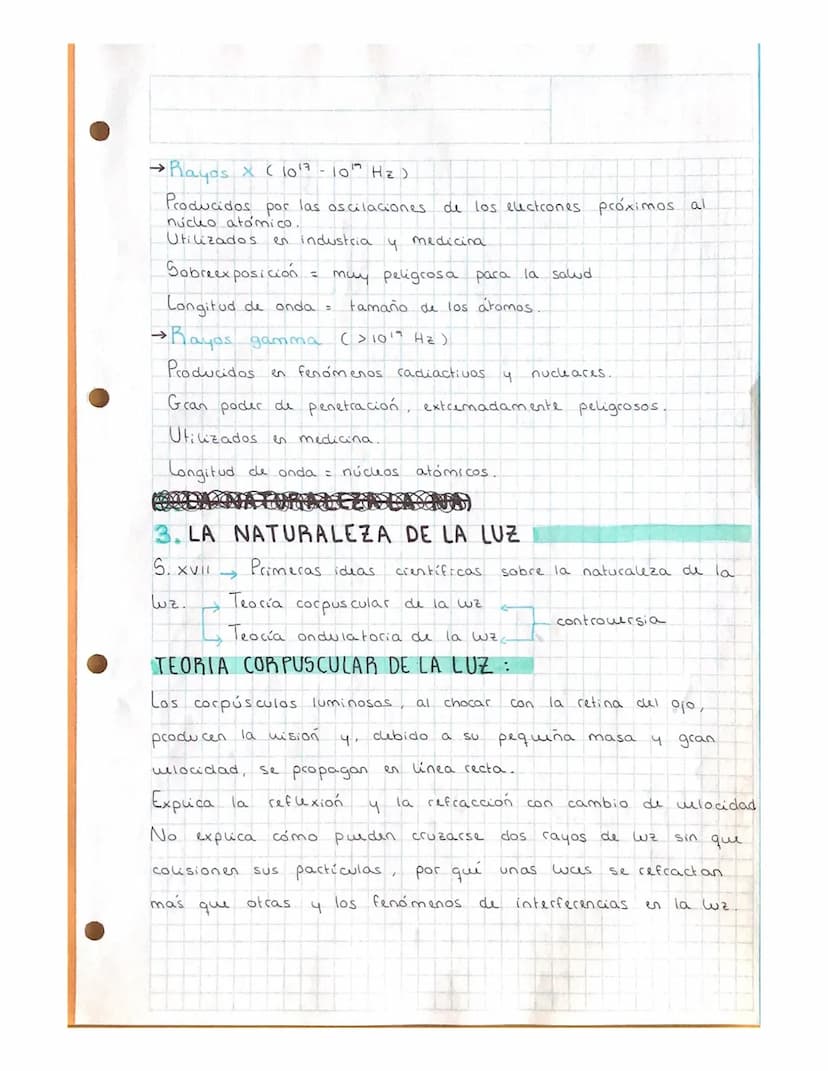 → Rayos X (10¹⁷ - 10¹⁹ Hz)
Producidos por las oscilaciones de los electrones próximos al
núcleo atómico.
Utilizados en industria y medicina
Sobreexposición = muy peligrosa para la salud
Longitud de onda = tamaño de los átomos.
→ Rayos gamma (>10¹⁹ Hz)
Producidos en fenómenos radiactivos y nucleares.
Gran poder de penetración, extremadamente peligrosos.
Utilizados en medicina.
Longitud de onda = núcleos atómicos.
LA NATURALEZA LA
3. LA NATURALEZA DE LA LUZ
S. XVII → Primeras ideas científicas sobre la naturaleza de la
luz. → Teoría corpuscular de la luz
→ Teoría ondulatoria de la luz
controversia
TEORIA CORPUSCULAR DE LA LUZ :
Los corpúsculos luminosos, al chocar con la retina del ojo,
producen la visión y, debido a su pequeña masa y gran
velocidad, se propagan en línea recta.
Explica la reflexión y la refracción con cambio de velocidad
No explica cómo pueden cruzarse dos rayos de luz sin que
colisionen sus partículas, por qué unas luces se refractan
más que otras y los fenómenos de interferencias en la luz.